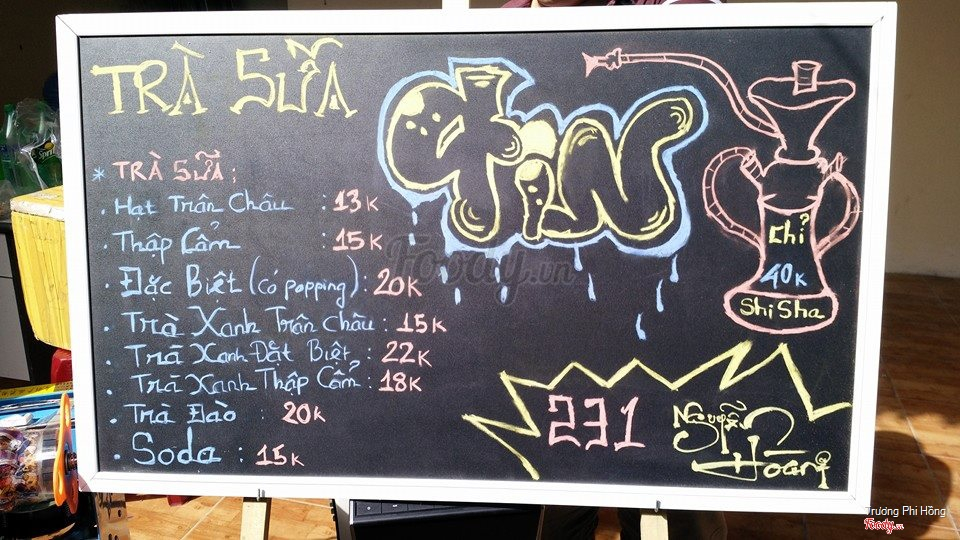 TRÀ SỮA
TiN
* TRÀ SỮA:
. Hạt Trân Châu : 13K
. Thập Cẩm : 15K
. Đặc Biệt (có popping): 20K
. Trà Xanh Trân Châu : 15K
. Trà Xanh Đắt Biệt : 22K
. Trà Xanh Thập Cẩm : 18K
. Trà Đào : 20K
. Soda : 15K
Chỉ
40K
ShiSha
231 Nguyễn Hoàng
Foody.vn
Trương Phi Hồng
Foody.vn